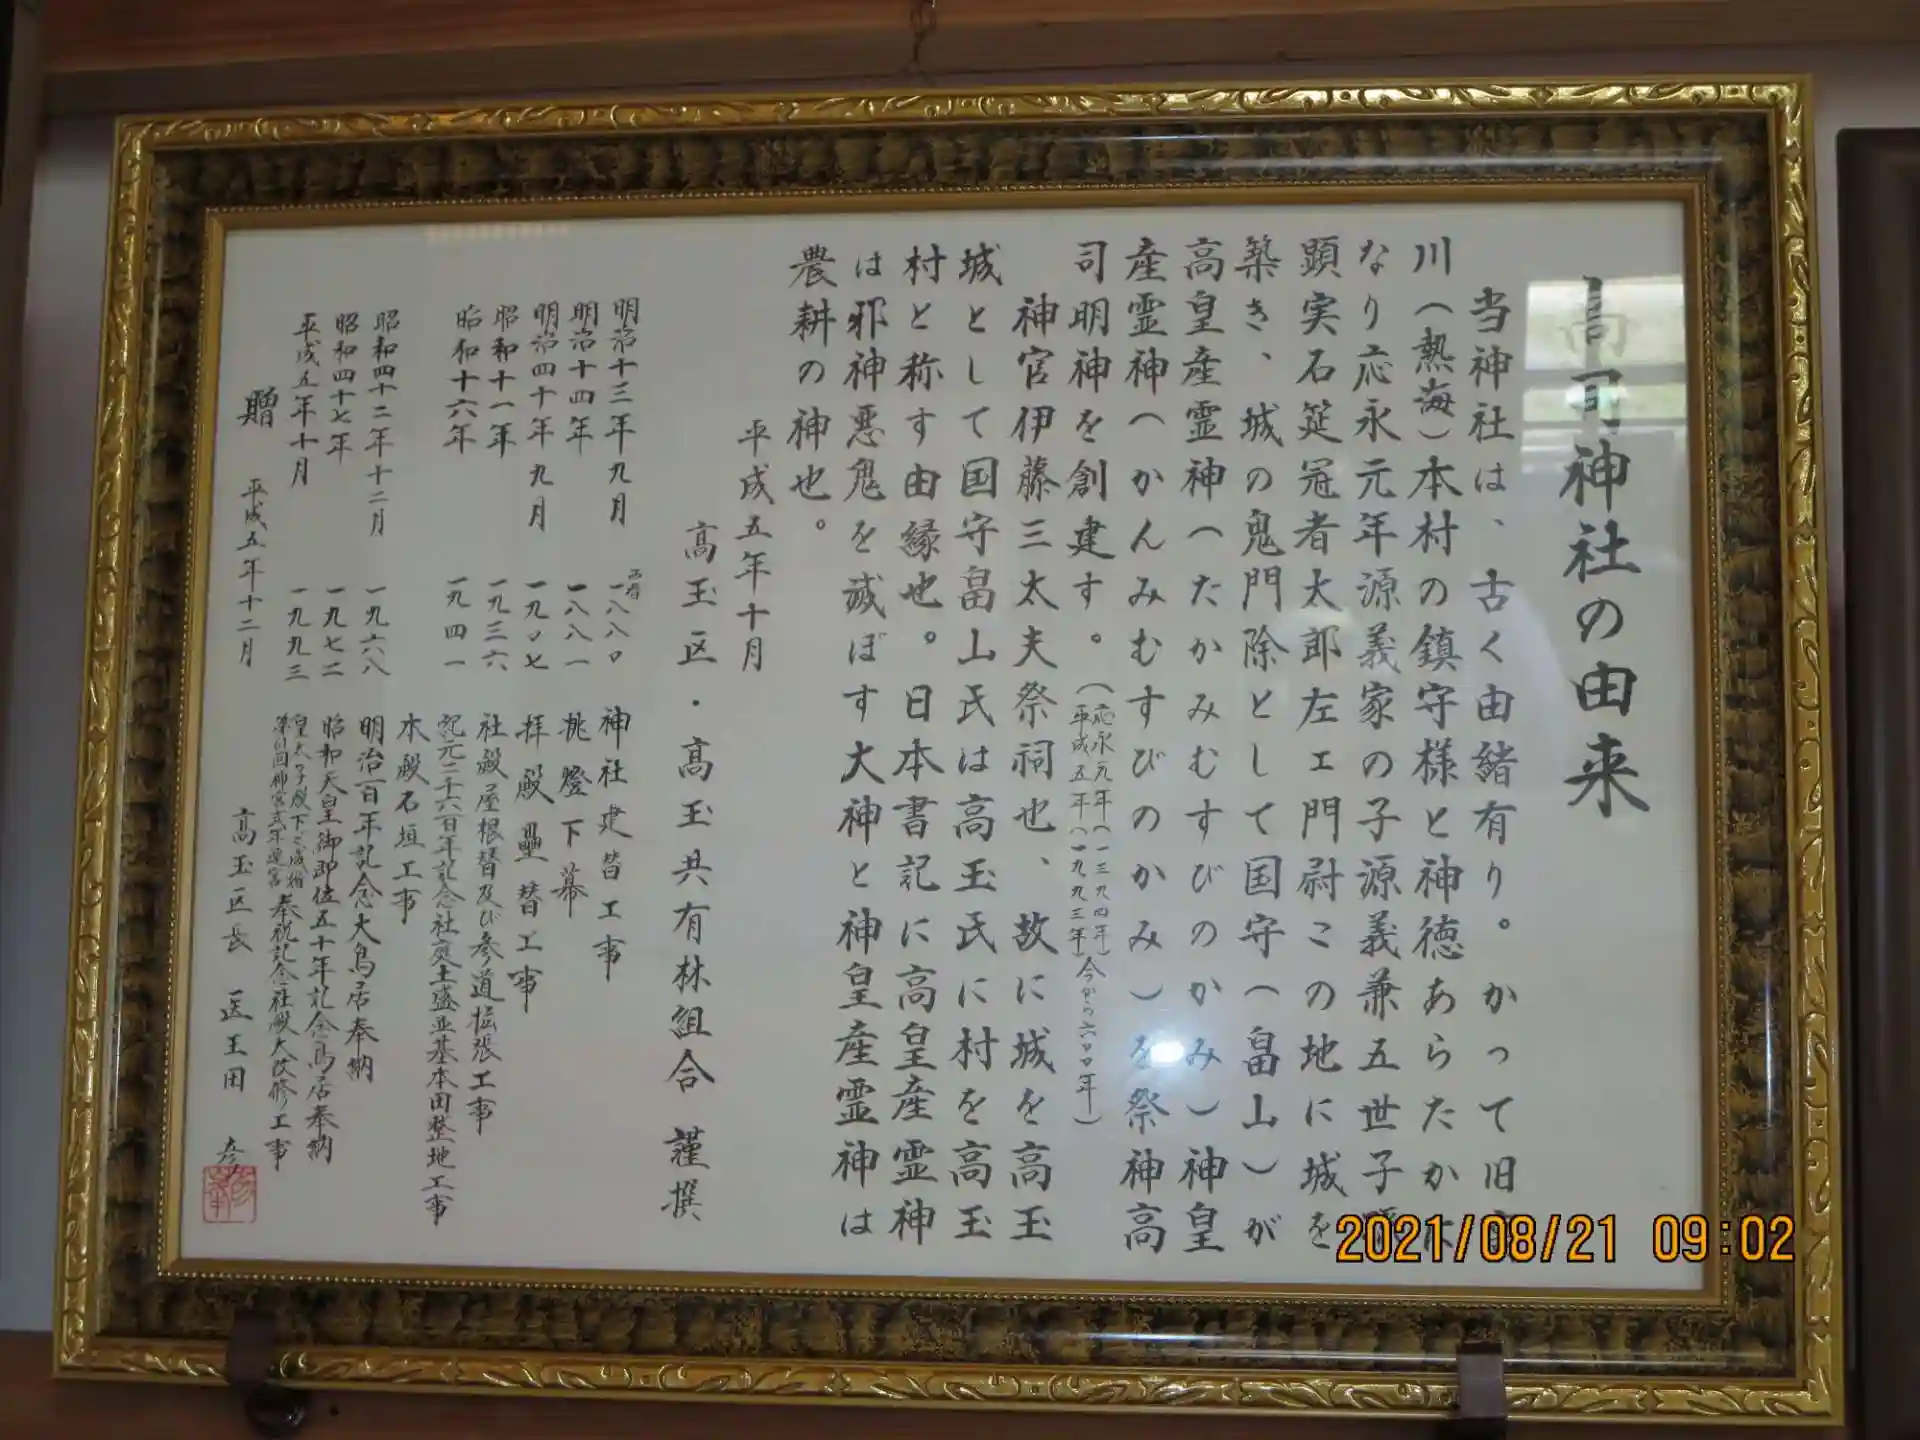 高司神社の由来
当神社は、古く由緒有り。かって旧高
川(熱海)本村の鎮守様と神徳あらたか
なり応永元年源義家の子源義兼五世子
顕実石筵冠者太郎左ェ門尉この地に城を
築き、城の鬼門除として国守(畠山)が
高皇産霊神(たかみむすびのかみ)神皇
産霊神(かんみむすびのかみ)を祭神高
司明神を創建す。(応永元年(一三九四年)
平成五年(一九九三年)今から六〇〇年)
神官伊藤三太夫祭祠也、故に城を高玉
城として国守畠山氏は高玉氏に村を高玉
村と称す由縁也。日本書記に高皇産霊神
は邪神悪鬼を滅ぼす大神と神皇産霊神は
農耕の神也。
平成五年十月
高玉区・高玉共有林組合 謹撰
明治十三年九月 西暦一八八〇 神社建替工事
明治十四年 一八八一 挑燈下幕
明治四十年九月 一九〇七 拝殿畳替工事
昭和十一年 一九三六 社殿屋根替及び参道拡張工事
昭和十六年 一九四一 紀元二千六百年記念社庭土盛並基本田整地工事
本殿石垣工事
昭和四十二年十二月 一九六八 明治百年記念大鳥居奉納
昭和四十七年 一九七二 昭和天皇御即位五十年記念鳥居奉納
平成五年十月 一九九三 皇太子殿下ご成婚
第61回神宮式年遷宮 奉祝記念社殿大改修工事
贈 平成五年十二月 高玉区長 王田 彦
2021/08/21 09:02